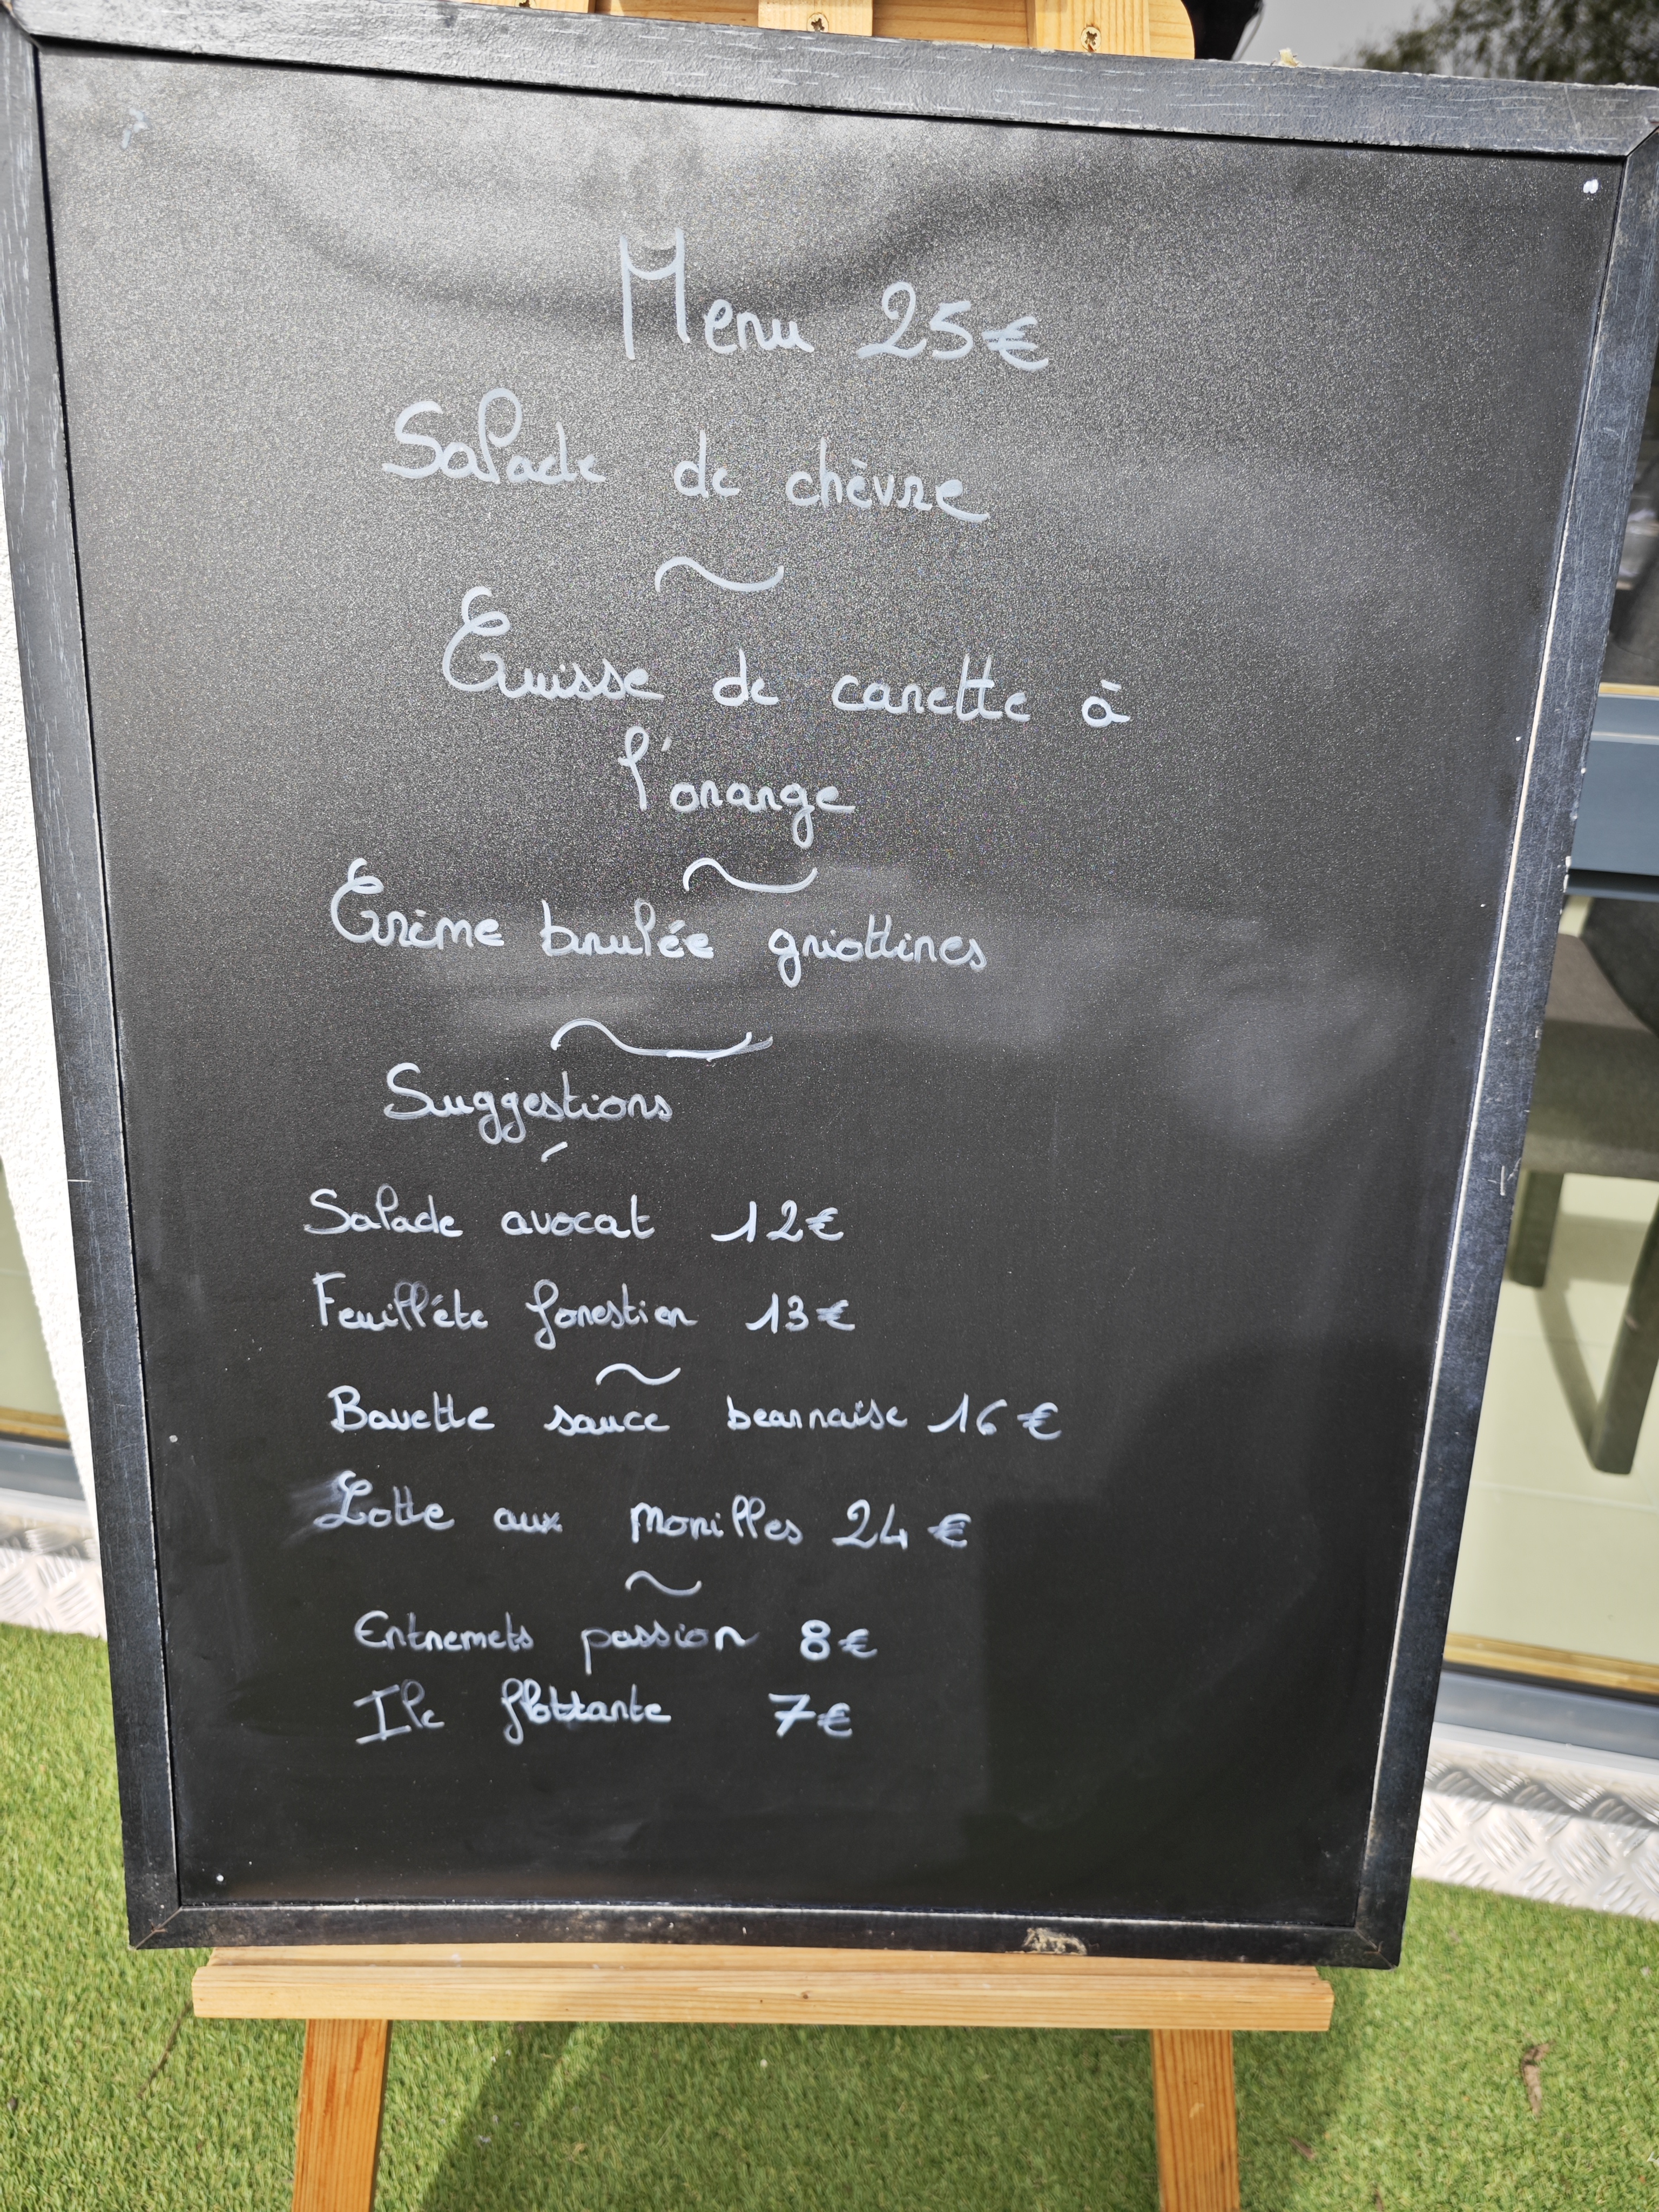 Menu 25€
Salade de chèvre
Cuisse de canette à
l'orange
Crème brulée griottines
Suggestions
Salade avocat 12€
Feuilléte forestier 13€
Bavette sauce bearnaise 16€
Lotte aux morilles 24€
Entremets passion 8€
Ile flottante 7€